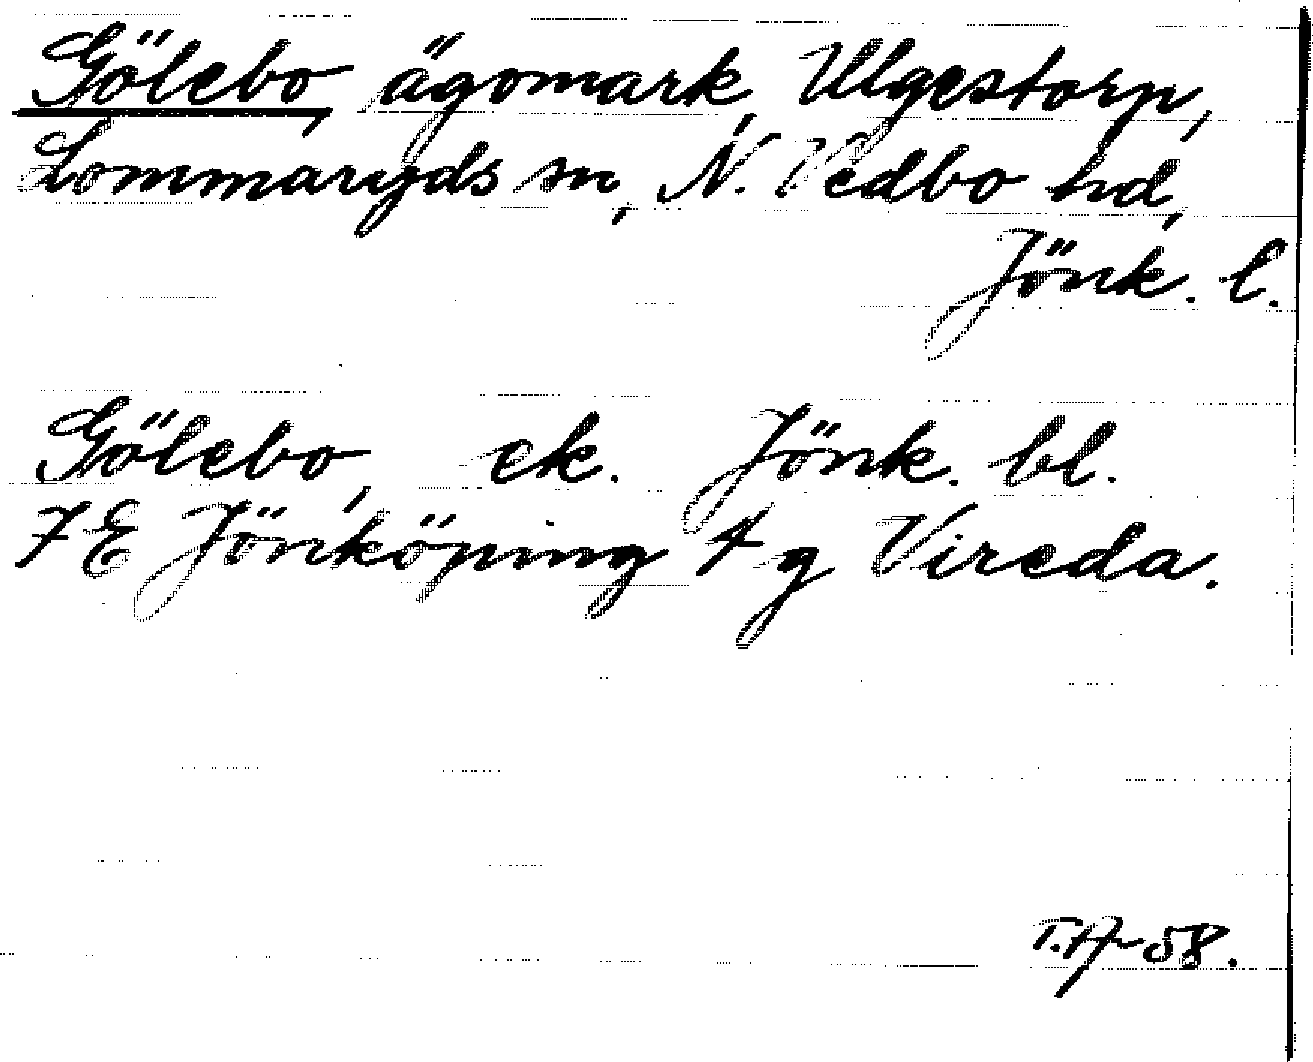 Gölebo, ägomark, Ulgestorp,
Lommaryds sn, N. Vedbo hd,
Jönk. l.
Gölebo, ek. Jönk. bl.
7 E Jönköping 4 g Vireda.
T.A-58.